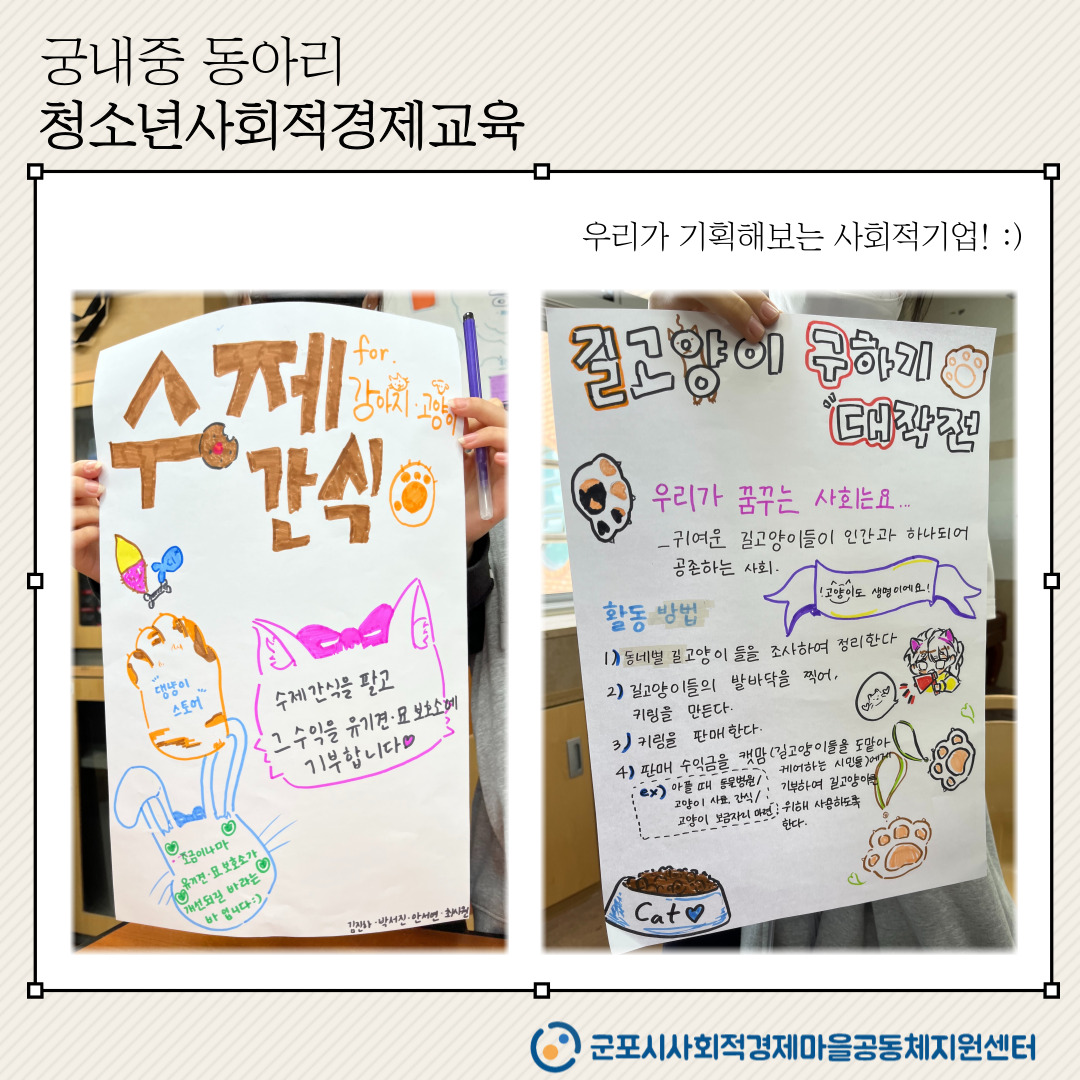 궁내중 동아리
청소년사회적경제교육
우리가 기획해보는 사회적기업! :)
수제
for.
강아지·고양이
간식
댕냥이
스토어
수제간식을 팔고
그 수익을 유기견·묘 보호소에
기부합니다
조금이나마
유기견·묘 보호소가
개선되길 바라는
바 입니다:)
김진하·박서진·안서연·최시원
길고양이 구하기
대작전
우리가 꿈꾸는 사회는요...
_귀여운 길고양이들이 인간과 하나되어
공존하는 사회.
!고양이도 생명이에요!
활동 방법
1) 동네별 길고양이 들을 조사하여 정리한다
2) 길고양이들의 발바닥을 찍어,
키링을 만든다.
3) 키링을 판매한다.
4) 판매 수익금을 캣맘(길고양이들을 도맡아
케어하는 시민들)에게
기부하여 길고양이를
위해 사용하도록
한다.
ex) 아플 때 동물병원/
고양이 사료, 간식/
고양이 보금자리 마련
Cat
군포시사회적경제마을공동체지원센터